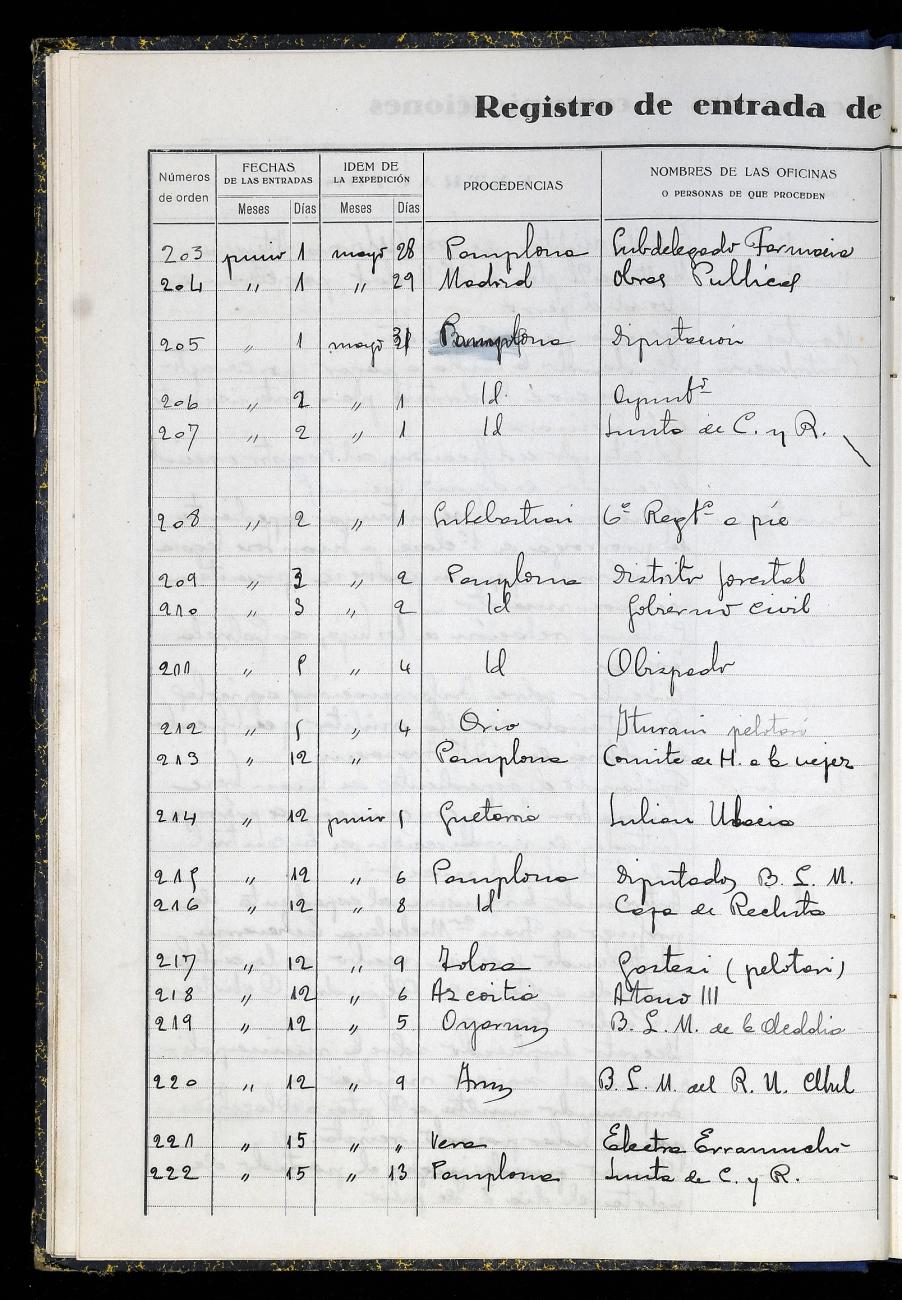 Registro de entrada de
Números de orden FECHAS DE LAS ENTRADAS IDEM DE LA EXPEDICIÓN PROCEDENCIAS NOMBRES DE LAS OFICINAS O PERSONAS DE QUE PROCEDEN
Meses Días Meses Días
203 junio 1 mayo 28 Pamplona Subdelegado Farmacia
204 " 1 " 29 Madrid Obras Publicas
205 " 1 mayo 31 Pamplona Diputación
206 " 2 " 1 Id. Ayuntº
207 " 2 " 1 Id Junta de C. y R.
208 " 2 " 1 S. Sebastian 6º Regtº a pie
209 " 3 " 2 Pamplona Distrito forestal
210 " 3 " 2 Id Gobierno civil
211 " 5 " 4 Id Obispado
212 " 5 " 4 Orio Iturain pelotari
213 " 12 " Pamplona Comite de H. a la vejez
214 " 12 junio 5 Guetaria Julian
215 " 12 " 6 Pamplona Diputados B. L. M.
216 " 12 " 8 Id Caja de Recluta
217 " 12 " 9 Tolosa Gastesi (pelotari)
218 " 12 " 6 Azcoitia Atano III
219 " 12 " 5 Oyarzun B. L. M. de la Alcaldia
220 " 12 " 9 Irun B. L. M. del R. U. Club
221 " 15 " " Vera Electra Erramuchi
222 " 15 " 13 Pamplona Junta de C. y R.